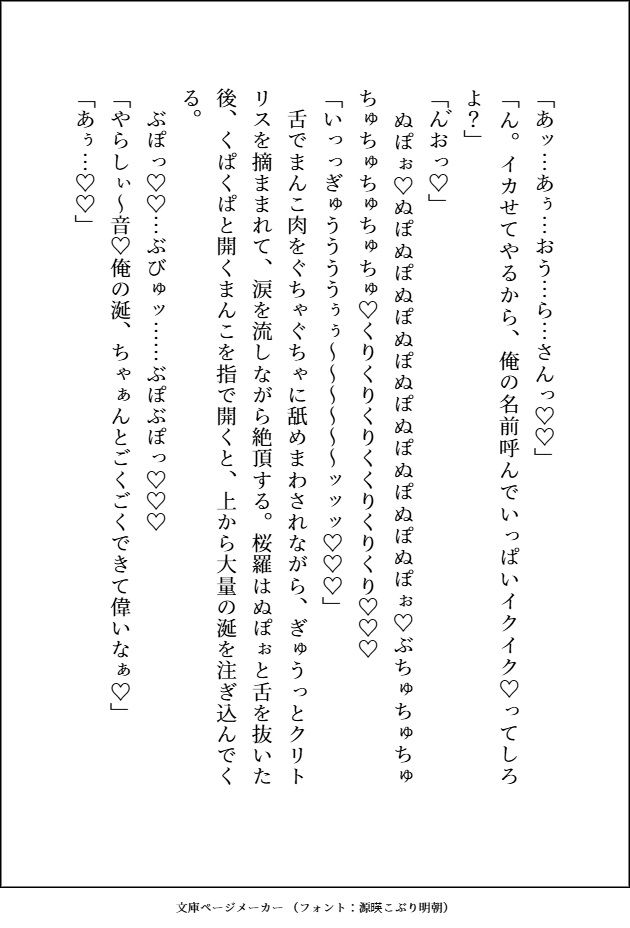 「あッ…あぅ…おう…ら…さんっ♡♡」
「ん。イカせてやるから、俺の名前呼んでいっぱいイクイク♡ってしろ
よ？」
「んおっ♡」
ぬぽぉ♡ぬぽぬぽぬぽぬぽぬぽぬぽぬぽぬぽぬぽぉ♡ぶちゅちゅちゅ
ちゅちゅちゅちゅちゅ♡くりくりくりくりくくりくりくり♡♡♡
「いっっぎゅうううぅぅ〜〜〜〜〜〜ッッッ♡♡♡」
舌でまんこ肉をぐちゃぐちゃに舐めまわされながら、ぎゅうっとクリト
リスを摘ままれて、涙を流しながら絶頂する。桜羅はぬぽぉと舌を抜いた
後、くぱくぱと開くまんこを指で開くと、上から大量の涎を注ぎ込んでく
る。
ぶぽっ♡♡…ぶびゅッ……ぶぽぶぽっ♡♡♡
「やらしぃ〜音♡俺の涎、ちゃぁんとごくごくできて偉いなぁ♡」
「あぅ…♡♡」
文庫ページメーカー（フォント：源暎こぶり明朝）